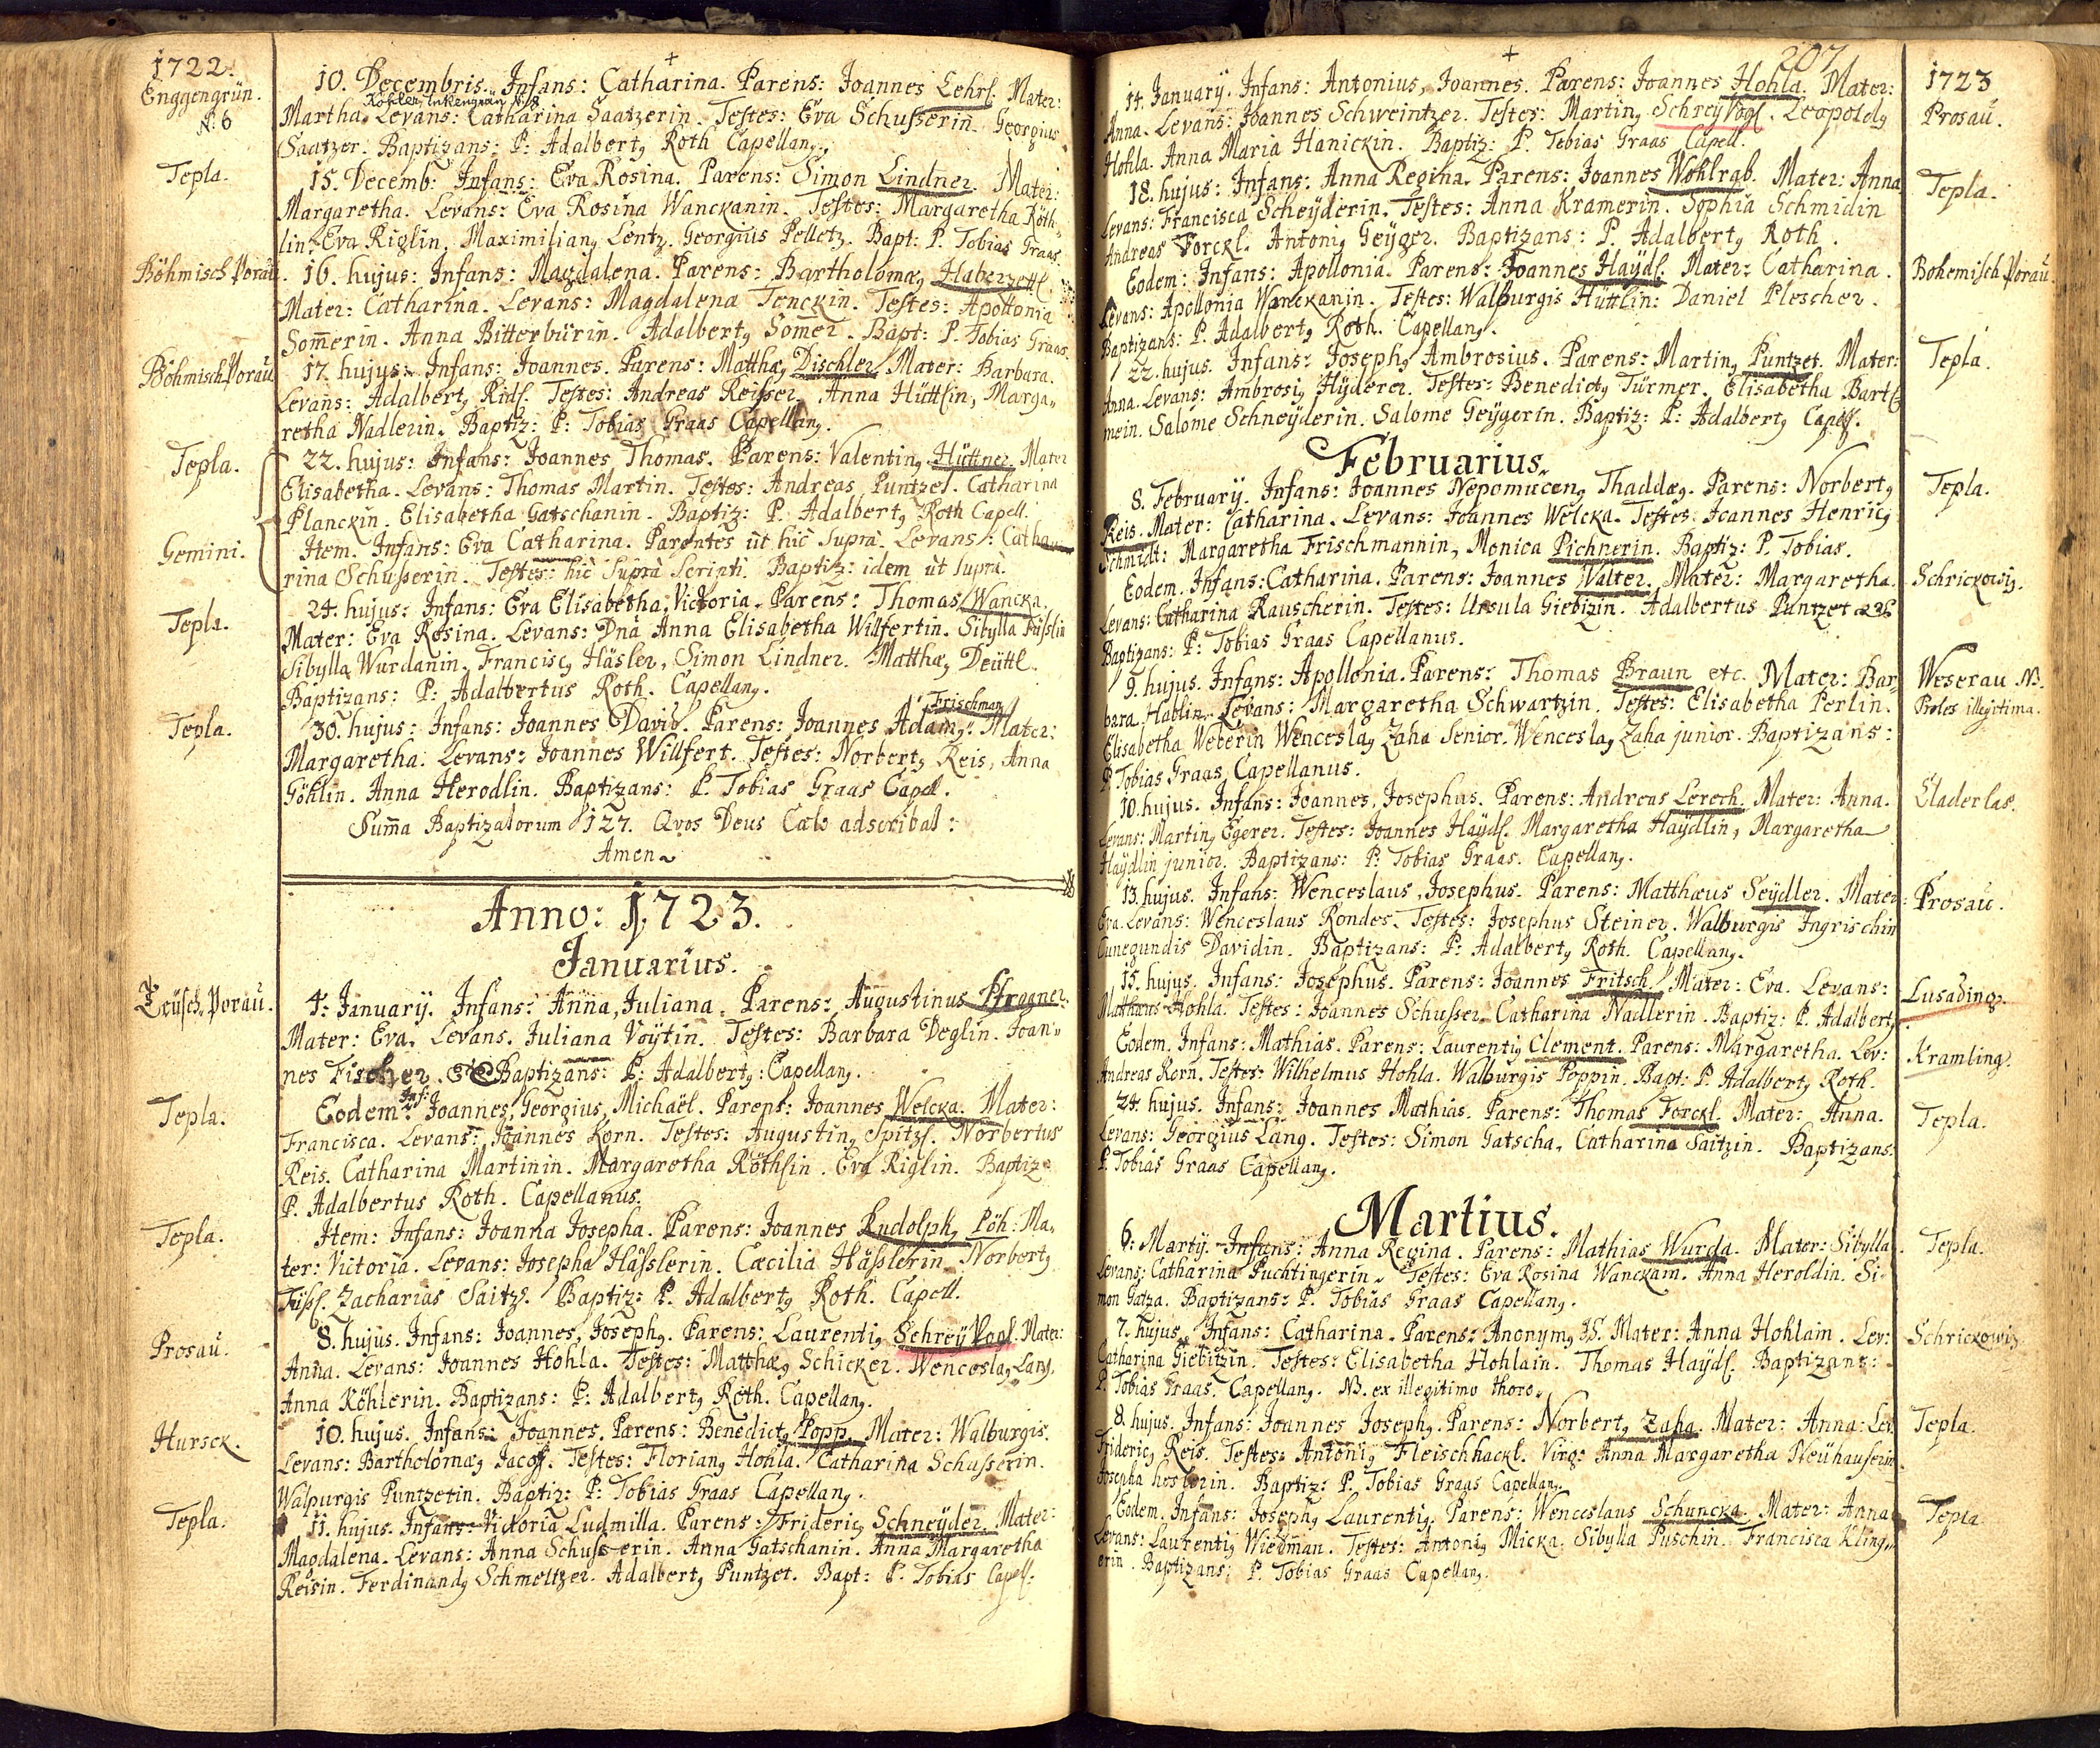 1722.
Enggengrün.
N. 6
10. Decembris. Infans: Catharina. Parens: Joannes Lehrl. Mater:
Köhler, Inkengrün N. 8
Martha. Levans: Catharina Saatzerin. Testes: Eva Schusserin. Georgius
Saatzer. Baptizans: P: Adalbertg Roth Capellang.
Tepla.
15. Decemb: Infans: Eva Rosina. Parens: Simon Lindner. Mater:
Margaretha. Levans: Eva Rosina Wanckanin. Testes: Margaretha Röth-
lin. Eva Riglin. Maximiliang Lentz. Georgius Pelletz. Bapt: P. Tobias Graas.
Böhmisch Porau.
16. hujus: Infans: Magdalena. Parens: Bartholomæg Haberzettl.
Mater: Catharina. Levans: Magdalena Tenckin. Testes: Apollonia
Som̄erin. Anna Bitterbürin. Adalbertg Som̄er. Bapt: P. Tobias Graas.
Böhmisch Porau
17. hujus: Infans: Joannes. Parens: Matthæg Dischler. Mater: Barbara.
Levans: Adalbertg Ridl. Testes: Andreas Reisser. Anna Hüttlin, Marga„
retha Nadlerin. Baptiz: P: Tobias Graas Capellang.
Tepla.
22. hujus: Infans: Joannes Thomas. Parens: Valenting Hüttner. Mater
Elisabetha. Levans: Thomas Martin. Testes: Andreas Puntzel. Catharina
Planckin. Elisabetha Gatschanin. Baptiz: P. Adalbertg Roth Capell.
Gemini.
Item. Infans: Eva Catharina. Parentes ut hic supra. Levans: Catha
rina Schusserin. Testes: hic supra scripti. Baptiz: idem ut supra.
Tepla.
24. hujus: Infans: Eva Elisabetha, Victoria. Parens: Thomas Wancka.
Mater: Eva Rosina. Levans: Dna Anna Elisabetha Willfertin. Sibylla Füsslin
Sibylla Wurdanin. Franciscg Häsler, Simon Lindner. Matthæg Deüttl.
Baptizans: P: Adalbertus Roth. Capellang.
Tepla.
Frischman
30. hujus: Infans: Joannes David. Parens: Joannes Adamg. Mater:
Margaretha. Levans: Joannes Willfert. Testes: Norbertg Reis, Anna
Göhlin. Anna Herodlin. Baptizans: P. Tobias Graas Capel.
Sum̄a Baptizatorum 127. Qvos Deus Cælo adscribat:
Amen
Anno: 1723.
Januarius.
Teüsch Porau.
4. Januarij. Infans: Anna, Juliana. Parens: Augustinus Pfrogner.
Mater: Eva. Levans. Juliana Voÿtin. Testes: Barbara Deglin. Joan„
nes Fischer. etc Baptizans: P: Adalbertg: Capellang.
Tepla.
Inf:
Eodem. Joannes, Georgius, Michaël. Parens: Joannes Welcka. Mater:
Francisca. Levans: Joannes Korn. Testes: Augusting Spitzl. Norbertus
Reis. Catharina Martinin. Margaretha Röthlin. Eva Riglin. Baptiz
P. Adalbertus Roth. Capellanus.
Tepla.
Item: Infans: Joanna Josepha. Parens: Joannes Rudolphg Pöh: Ma„
ter: Victoria. Levans: Josepha Hässlerin. Cæcilia Hässlerin Norbertg
Füssl. Zacharias Saitz. Baptiz: P. Adalbertg Roth. Capell.
Prosau.
8. hujus. Infans: Joannes, Josephg. Parens: Laurentig Schreÿ Vogl. Mater:
Anna. Levans: Joannes Hohla. Testes: Matthæg Schicker. Wenceslag Lang.
Anna Köhlerin. Baptizans: P: Adalbertg Roth. Capellang.
Hurschk.
10. hujus. Infans: Joannes. Parens: Benedictg Popp. Mater: Walburgis.
Levans: Bartholomæg Jacoff. Testes: Floriang Hohla. Catharina Schusserin.
Walpurgis Puntzetin. Baptiz: P: Tobias Graas Capellang.
Tepla.
11. hujus. Infans: Victoria Ludmilla. Parens: Fridericg Schneÿder. Mater:
Magdalena. Levans: Anna Schusserin. Anna Gatschanin. Anna Margaretha
Reisin. Ferdinandg Schmeltzer. Adalbertg Puntzet. Bapt: P. Tobias Capel:
207
1723
Prosau.
14. January. Infans: Antonius, Joannes. Parens: Joannes Hohla. Mater:
Anna. Levans: Joannes Schweintzer. Testes: Marting Schreÿ Vogl. Leopoldg
Hohla. Anna Maria Hanickin. Baptiz: P. Tobias Graas Capell.
Tepla.
18. hujus: Infans: Anna Regina. Parens: Joannes Wohlrab. Mater: Anna
Levans: Francisca Scheÿderin. Testes: Anna Kramerin. Sophia Schmidin
Andreas Forckl. Antonig Geÿger. Baptizans: P. Adalbertg Roth.
Bohemisch Porau.
Eodem: Infans: Apollonia. Parens: Joannes Haÿdl. Mater: Catharina.
Levans: Apollonia Wanckanin. Testes: Walburgis Hüttlin: Daniel Plescher.
Baptizans: P. Adalbertg Roth. Capellang.
Tepla
22. hujus. Infans: Josephg Ambrosius. Parens: Marting Puntzet. Mater:
Anna. Levans: Ambrosig Hÿderer. Testes: Benedictg Türmer. Elisabetha Bartl
mein. Salome Schneÿderin. Salome Geÿgerin. Baptiz: P: Adalbertg Capell.
Februarius.
Tepla.
8. February. Infans: Joannes Nepomuceng Thaddæg. Parens: Norbertg
Reis. Mater: Catharina. Levans: Joannes Welcka. Testes: Joannes Henricg
Schmidt: Margaretha Frischmannin, Monica Pichnerin. Baptiz: P. Tobias.
Schrickowig.
Eodem. Infans: Catharina. Parens: Joannes Walter. Mater: Margaretha.
Levans: Catharina Rauscherin. Testes: Ursula Giebizin. Adalbertus Puntzet
Baptizans: P: Tobias Graas Capellanus.
Weserau NB.
Proles illegitima.
9. hujus. Infans: Apollonia. Parens: Thomas Braun etc. Mater: Bar„
bara. Hablin. Levans: Margaretha Schwartzin. Testes: Elisabetha Perlin.
Elisabetha Weberin Wenceslag Zaha Senior. Wenceslag Zaha junior. Baptizans:
P. Tobias Graas Capellanus.
Eladerlas.
10. hujus. Infans: Joannes, Josephus. Parens: Andreas Lerech. Mater: Anna.
Levans: Marting Egerer. Testes: Joannes Haÿdl. Margaretha Haÿdlin, Margaretha
Haÿdlin junior. Baptizans: P: Tobias Graas. Capellang.
Prosau.
13. hujus. Infans: Wenceslaus, Josephus. Parens: Matthæus Seÿdler. Mater:
Eva. Levans: Wenceslaus Rondes. Testes: Josephus Steiner. Walburgis Ingrischin
Cunegundis Davidin. Baptizans: P: Adalbertg Roth. Capellang.
Lusading.
15. hujus. Infans: Josephus. Parens: Joannes Fritsch. Mater: Eva. Levans:
Matthæus Hohla. Testes: Joannes Schusser. Catharina Nadlerin. Baptiz: P. Adalbertg
Kramling.
Eodem. Infans: Mathias. Parens: Laurentig Clement. Parens: Margaretha. Lev:
Andreas Korn. Testes: Wilhelmus Hohla. Walburgis Poppin. Bapt: P. Adalbertg Roth.
Tepla.
24. hujus. Infans: Joannes Mathias. Parens: Thomas Forckl. Mater: Anna.
Levans: Georgius Lang. Testes: Simon Gatscha, Catharina Saitzin. Baptizans:
P. Tobias Graas Capellang.
Martius.
Tepla.
6. Martij. Infans: Anna Regina. Parens: Mathias Wurda. Mater: Sibylla.
Levans: Catharina Puchtingerin. Testes: Eva Rosina Wanckam. Anna Heroldin. Si-
mon Gatza. Baptizans: P. Tobias Graas Capellang.
Schrickowiz
7. hujus. Infans: Catharina. Parens: Anonymg J.S. Mater: Anna Hohlain. Lev:
Catharina Giebitzin. Testes: Elisabetha Hohlain. Thomas Haÿdl. Baptizans:
P. Tobias Graas. Capellang. NB. ex illegitimo thoro.
Tepla.
8. hujus. Infans: Joannes Josephg. Parens: Norbertg Zaha. Mater: Anna: Lev
Fridericg Reis. Testes: Antonig Fleischhackl. Virg: Anna Margaretha Neühauserin
Josepha heslerin. Baptiz: P. Tobias Graas Capellang.
Tepla.
Eodem. Infans: Josephg Laurentig. Parens: Wenceslaus Schuncka. Mater: Anna
Levans: Laurentig Wiedman. Testes: Antonig Micka. Sibylla Puschin. Francisca Kling„
erin. Baptizans: P. Tobias Graas Capellang.